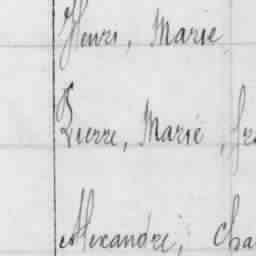 Henri, Marie
Pierre, Marie, fra
Alexandre, Cha